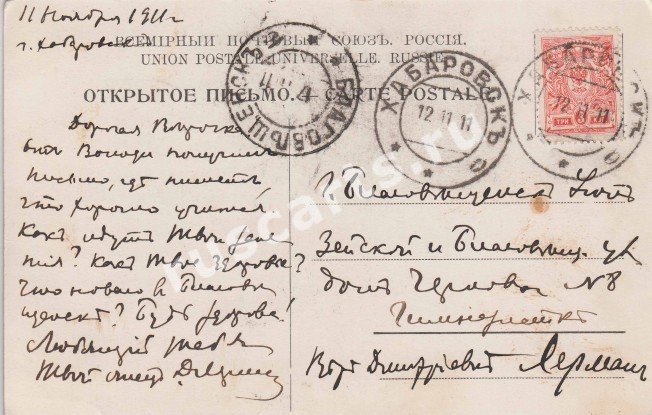 11 Ноября 1911 г
г. Хабаровск
ВСЕМІРНЫЙ ПОЧТОВЫЙ СОЮЗЪ. РОССІЯ.
UNION POSTALE UNIVERSELLE. RUSSIE.
ОТКРЫТОЕ ПИСЬМО. — CARTE POSTALE.
БЛАГОВѢЩЕНСКЪ
ХАБАРОВСКЪ
12 11 11
ХАБАРОВСКЪ
12 11 11
Дорогая
Володи получилъ
письмо, гдѣ пишетъ,
что хорошо учится
Какъ идутъ Твои
Какъ Твое здоровье?
Что новаго въ Благовѣ
щенскѣ? Будь здорова!
Любящій тебя
Твой отецъ
г. Благовѣщенскъ
Зейской и Благовѣщ. ул
домъ № 8
Гимназисткѣ
Дмитріевнѣ Лерманъ
ruscards.ru